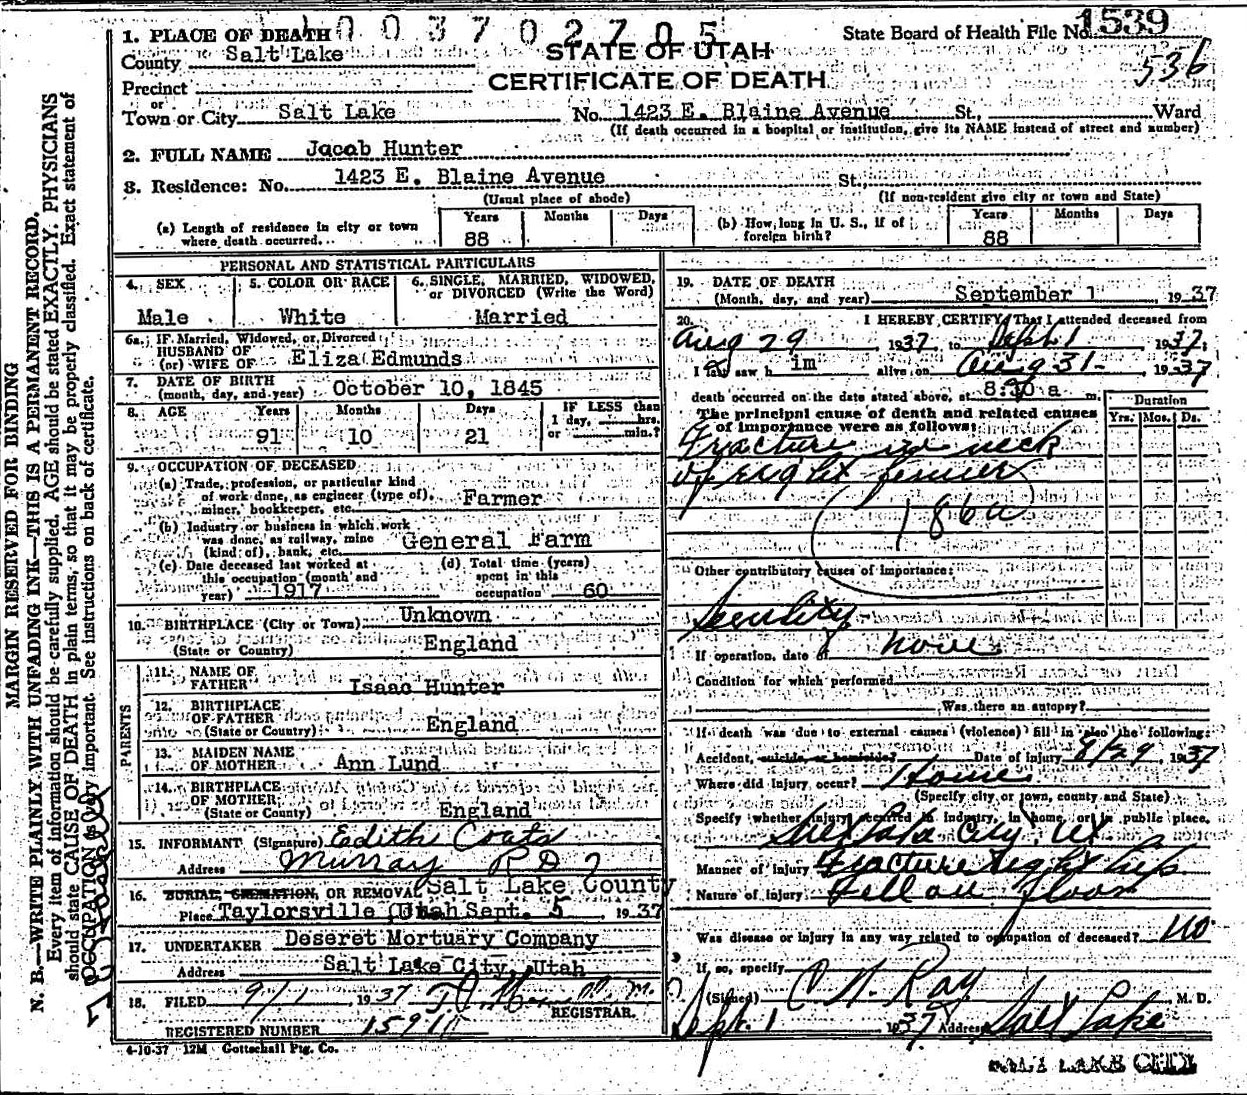 1003702705
1. PLACE OF DEATH
STATE OF UTAH
State Board of Health File No. 1539
County Salt Lake
CERTIFICATE OF DEATH
536
Precinct
or
Town or City Salt Lake No. 1423 E. Blaine Avenue St., Ward
(If death occurred in a hospital or institution, give its NAME instead of street and number)
2. FULL NAME Jacob Hunter
3. Residence: No. 1423 E. Blaine Avenue St.,
(Usual place of abode) (If non-resident give city or town and State)
(a) Length of residence in city or town where death occurred... Years 88 Months Days
(b) How long in U. S., if of foreign birth? Years 88 Months Days
PERSONAL AND STATISTICAL PARTICULARS
4. SEX Male
5. COLOR OR RACE White
6. SINGLE, MARRIED, WIDOWED, or DIVORCED (Write the Word) Married
6a. IF Married, Widowed, or Divorced
HUSBAND OF
(or) WIFE OF Eliza Edmunds
7. DATE OF BIRTH
(month, day, and year) October 10, 1845
8. AGE Years 91 Months 10 Days 21 IF LESS than 1 day, hrs. or min.?
9. OCCUPATION OF DECEASED
(a) Trade, profession, or particular kind
of work done, as engineer (type of),
miner, bookkeeper, etc. Farmer
(b) Industry or business in which work
was done, as railway, mine
(kind of), bank, etc. General Farm
(c) Date deceased last worked at
this occupation (month and
year) 1917
(d) Total time (years)
spent in this
occupation 60
10. BIRTHPLACE (City or Town) Unknown
(State or Country) England
PARENTS
11. NAME OF
FATHER Isaac Hunter
12. BIRTHPLACE
OF FATHER
(State or Country) England
13. MAIDEN NAME
OF MOTHER Ann Lund
14. BIRTHPLACE
OF MOTHER
(State or County) England
15. INFORMANT (Signature) Edith Coats
Address Murray R D 7
16. BURIAL, CREMATION, OR REMOVAL Salt Lake County
Place Taylorsville, Utah Sept. 5, 1937
17. UNDERTAKER Deseret Mortuary Company
Address Salt Lake City, Utah
18. FILED 9/1 1937
REGISTRAR.
REGISTERED NUMBER
4-10-37 12M Gottschall Ptg. Co.
19. DATE OF DEATH
(Month, day, and year) September 1, 1937
20. I HEREBY CERTIFY, That I attended deceased from
Aug 29 1937, to Sept. 1 1937;
I last saw him alive on Aug 31- , 1937
death occurred on the date stated above, at 8:30 a m.
The principal cause of death and related causes
of importance were as follows:
Duration
Yrs. Mos. Ds.
Fracture in neck
of right femur
186a
Other contributory causes of importance:
Senility
If operation, date of none
Condition for which performed
Was there an autopsy?
If death was due to external causes (violence) fill in also the following:
Accident, suicide, or homicide? Date of injury 8/29 1937
Where did injury occur? Home
(Specify city or town, county and State)
Specify whether injury occurred in industry, in home, or in public place.
Salt Lake City Ut
Manner of injury Fracture right hip
Nature of injury Fell on floor
Was disease or injury in any way related to occupation of deceased? no
If so, specify
(Signed) C N. Ray M. D.
Sept. 1 1937 Address Salt Lake
SALT LAKE CITY
MARGIN RESERVED FOR BINDING
N. B.—WRITE PLAINLY WITH UNFADING INK—THIS IS A PERMANENT RECORD.
Every item of information should be carefully supplied. AGE should be stated EXACTLY. PHYSICIANS
should state CAUSE OF DEATH in plain terms, so that it may be properly classified. Exact statement of
OCCUPATION is very important. See instructions on back of certificate.